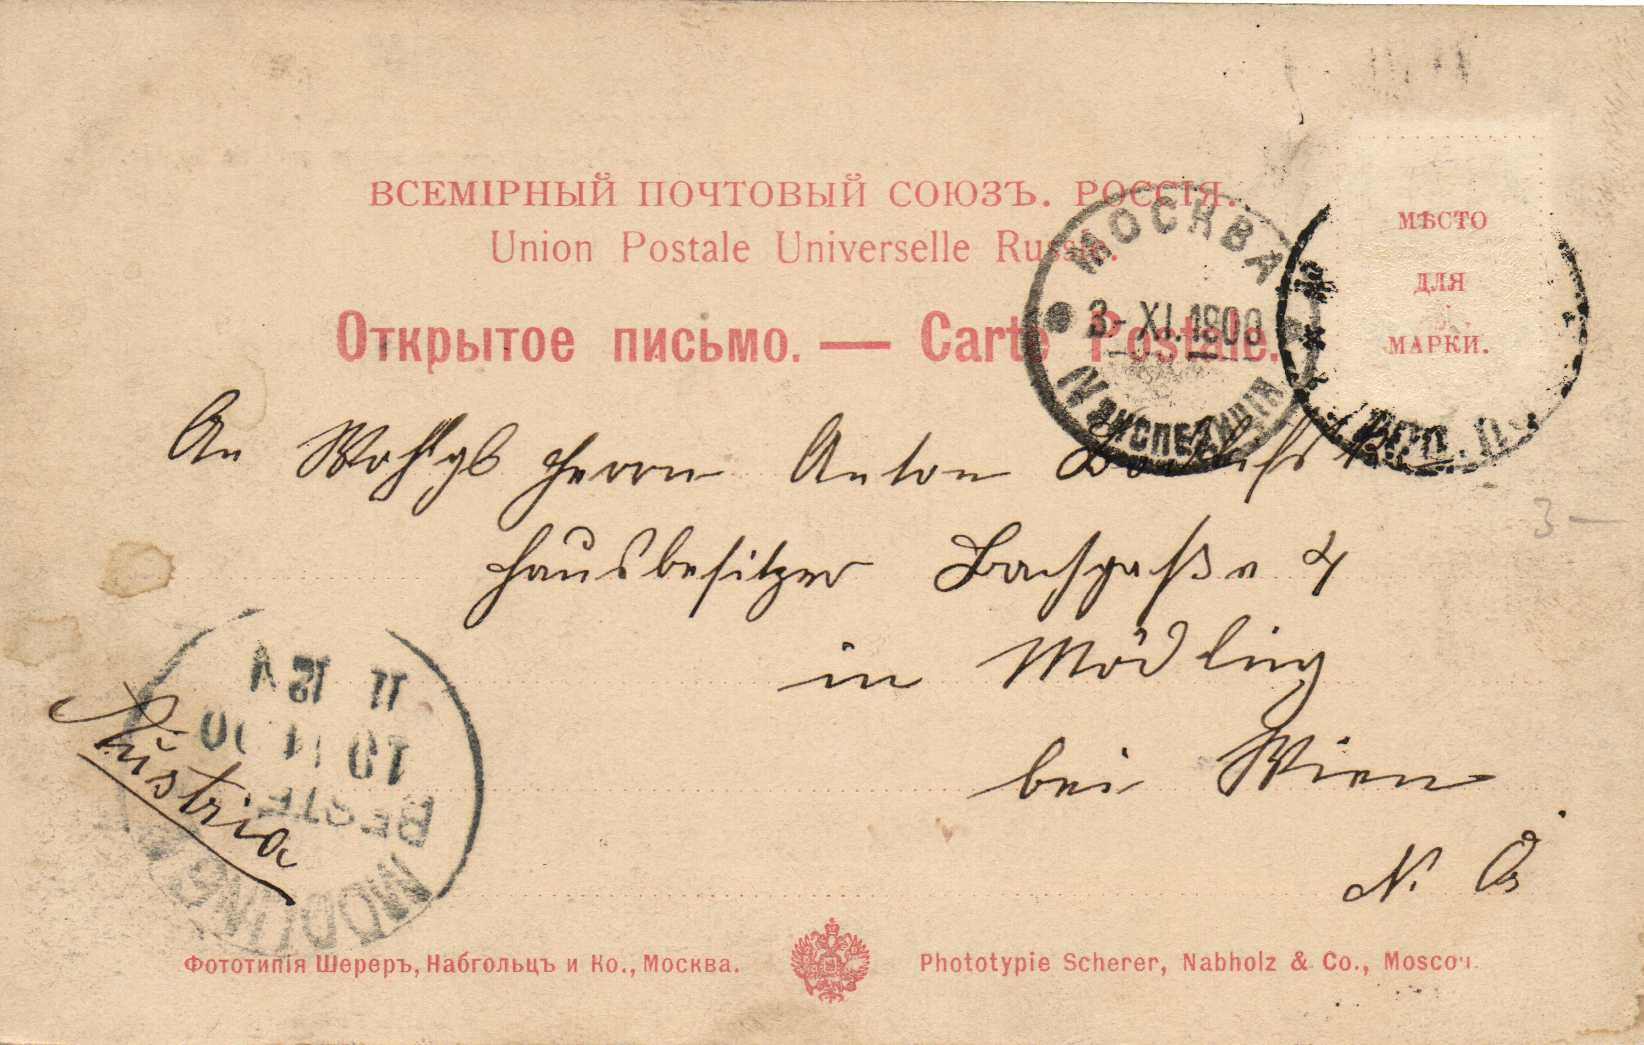 ВСЕМІРНЫЙ ПОЧТОВЫЙ СОЮЗЪ. РОССІЯ.
Union Postale Universelle Russie.
Открытое письмо. — Carte Postale.
МѢСТО
ДЛЯ
МАРКИ.
МОСКВА
3-XI.1900
IV ЭКСПЕДИЦІЯ
An Wohlgb Herrn Anton
3-
Hausbesitzer Bachgaße 4
in Mödling
bei Wien
N. Ö
Austria
11 12 A
BESTE
MÖDLING
Фототипія Шереръ, Набгольцъ и Ко., Москва.
Phototypie Scherer, Nabholz & Co., Moscou.